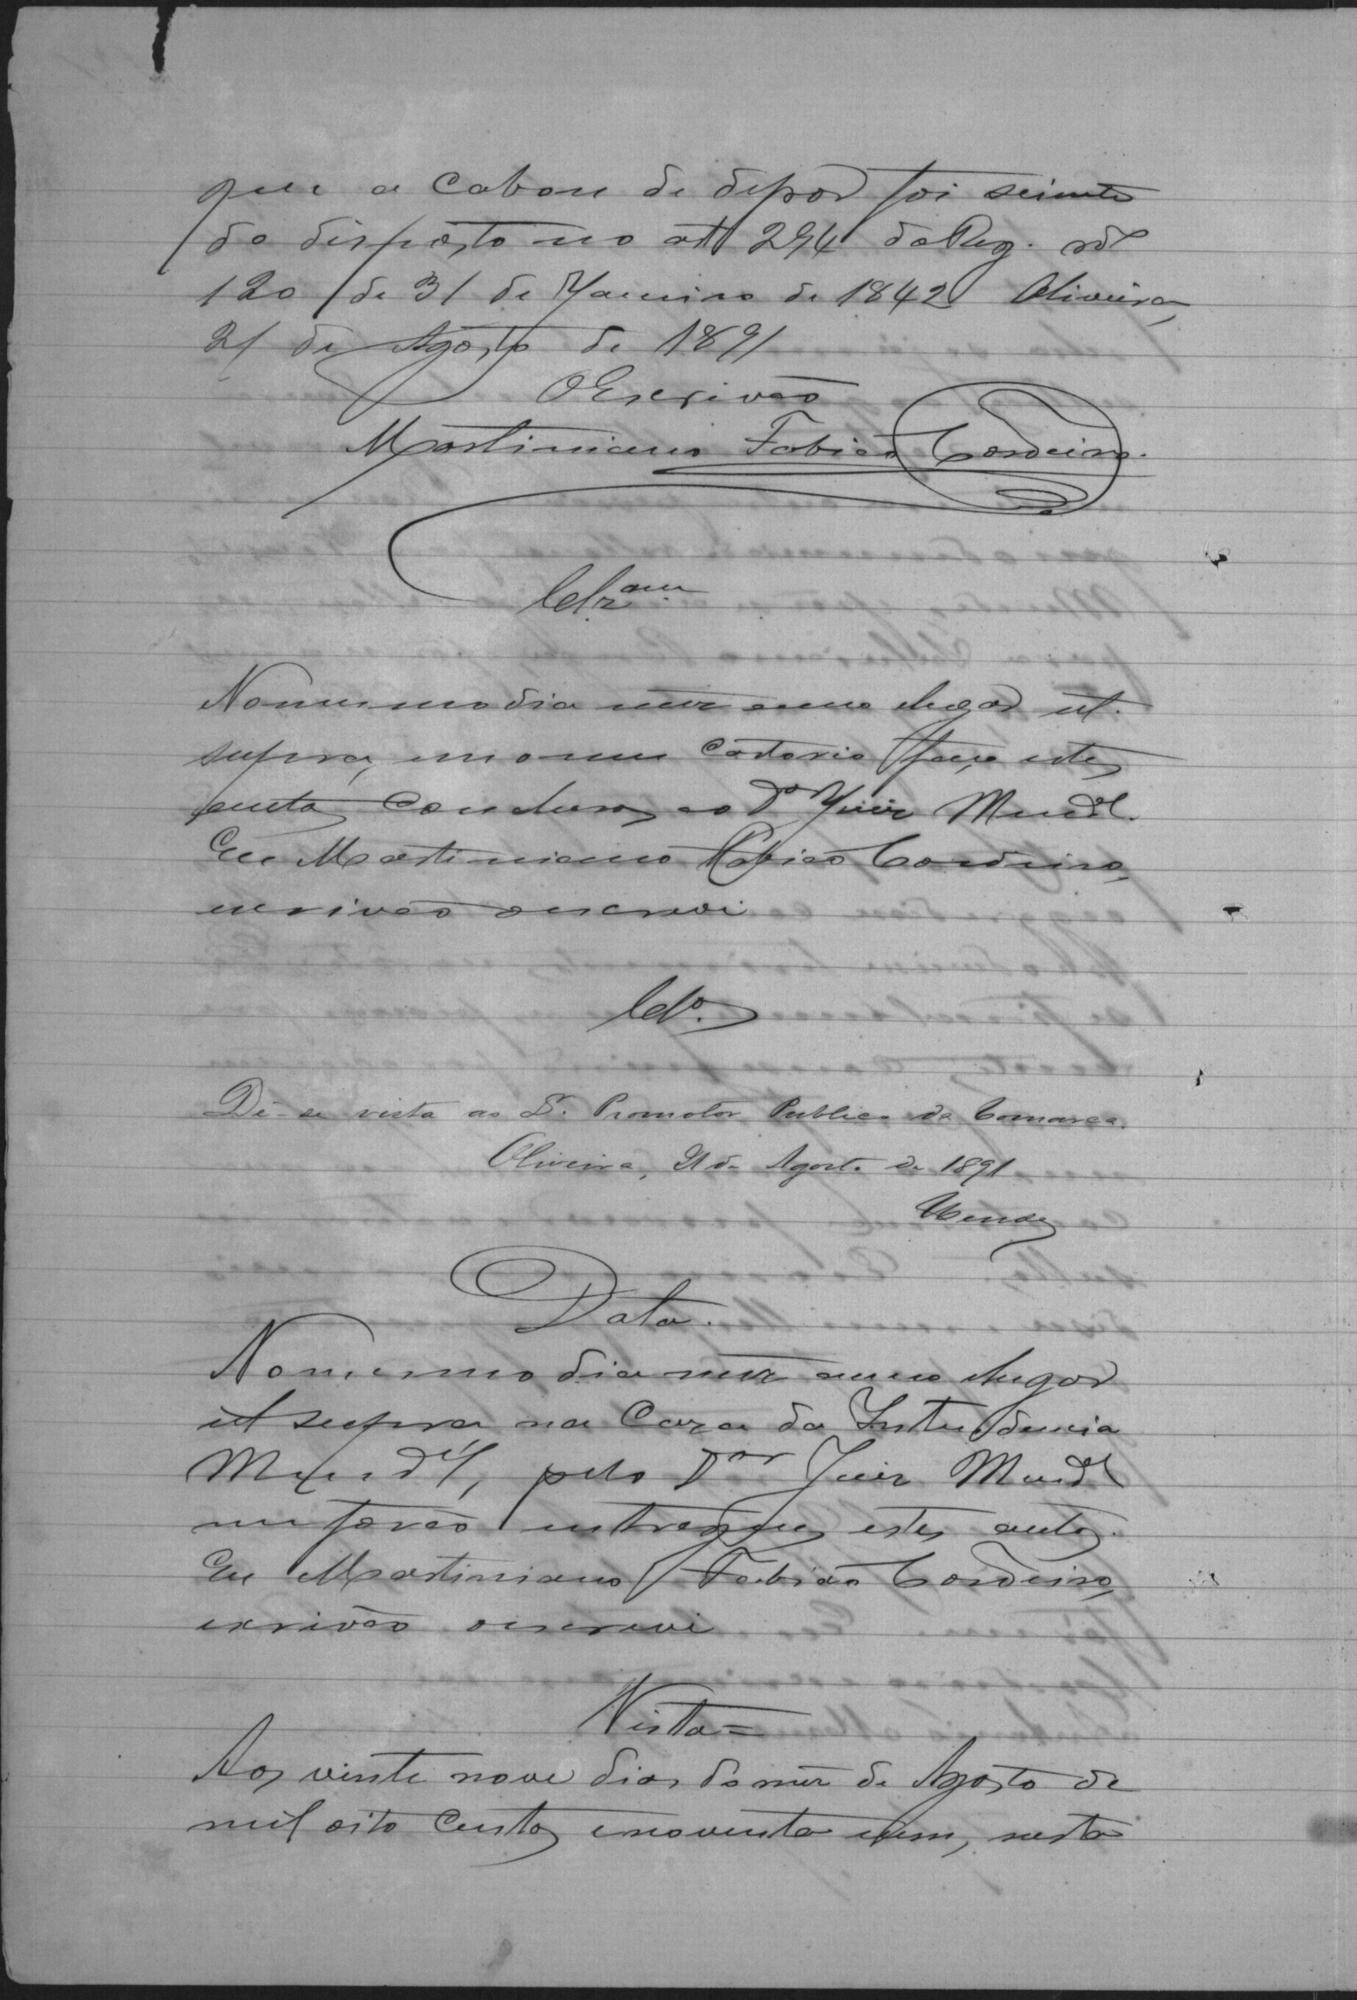 que a cabou de depor foi sciente
do disposto no art 294 do Reg. nº
120 de 31 de Janeiro de 1842 Oliveira,
21 de Agosto de 1891
O Escrivão
Martiniano Fabião Cordeiro.
Clz.am
No mesmo dia mez anno e lugar ut.
supra, em o meu cartorio faço estes
autos Conclusos ao Dor Juiz Mun.al
Eu Martiniano Fabião Cordeiro,
escrivão o escrevi
Clo.
Dê-se vista ao Dr. Promotor Publico da Comarca.
Oliveira, 21 de Agosto de 1891
Mendes
Data.
No mesmo dia mez anno e lugar
ut supra na Caza da Intendencia
Municipal, pelo Dor Juiz Mun.al
me forão entregues estes autos.
Eu Martiniano Fabião Cordeiro,
escrivão o escrevi
Vista=
Aos vinte nove dias do mez de Agosto de
mil oito centos e noventa e um, nesta